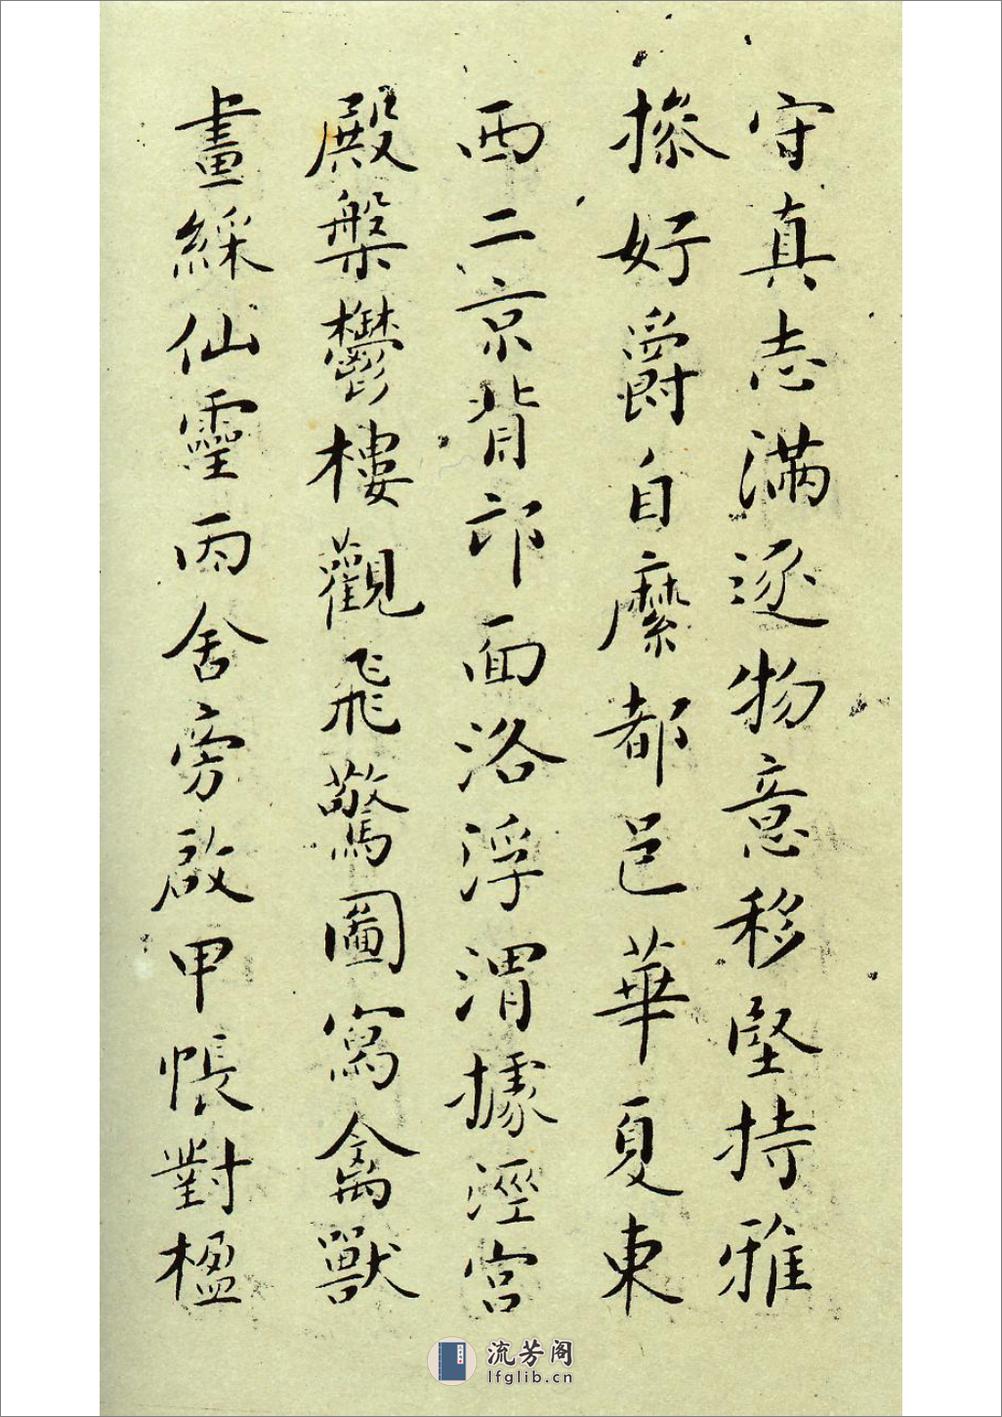 守真志滿逐物意移堅持雅
操好爵自縻都邑華夏東
西二京背邙面洛浮渭據涇宮
殿槃鬱樓觀飛驚圖寫禽獸
畫綵仙靈丙舍旁啟甲帳對楹
流芳阁
lfglib.cn